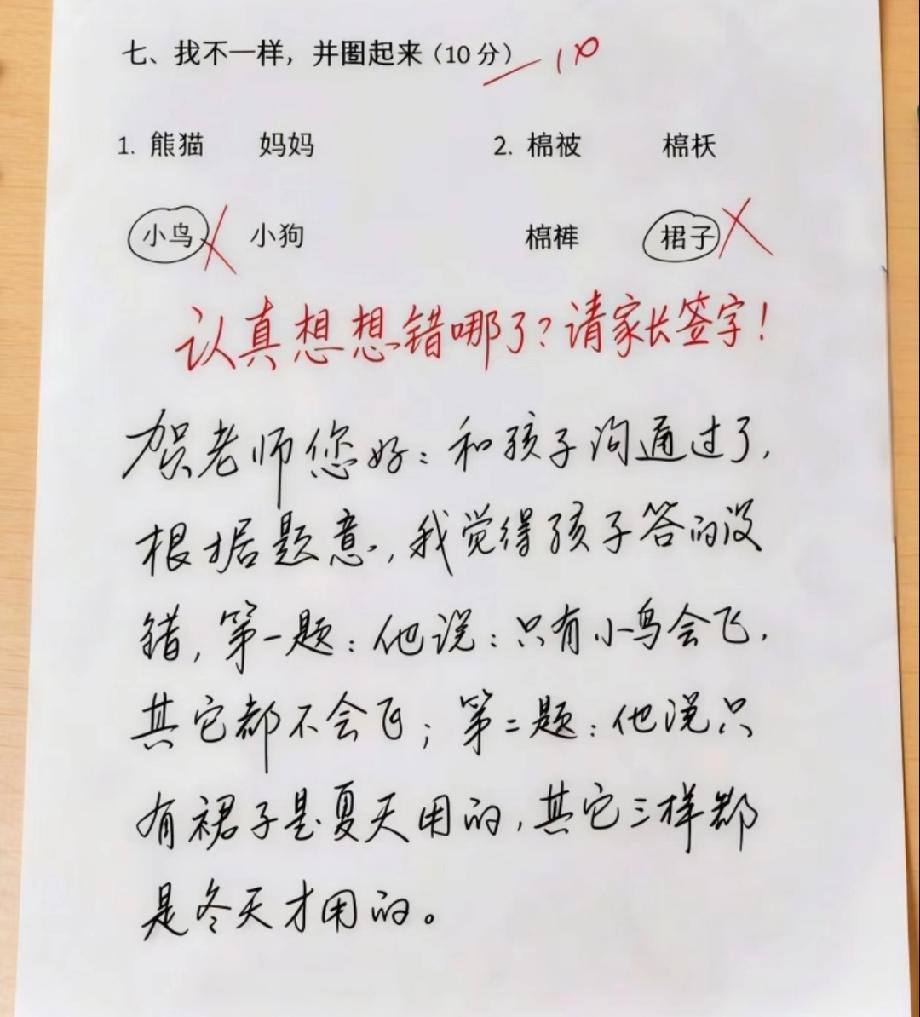 七、找不一样，并圈起来（10分） －10
1. 熊猫 妈妈 2. 棉被 棉袄
小鸟 小狗 棉裤 裙子
认真想想错哪了?请家长签字!
贺老师您好：和孩子沟通过了，
根据题意，我觉得孩子答的没
错，第一题：他说：只有小鸟会飞，
其它都不会飞；第二题：他说只
有裙子是夏天用的，其它三样都
是冬天才用的。